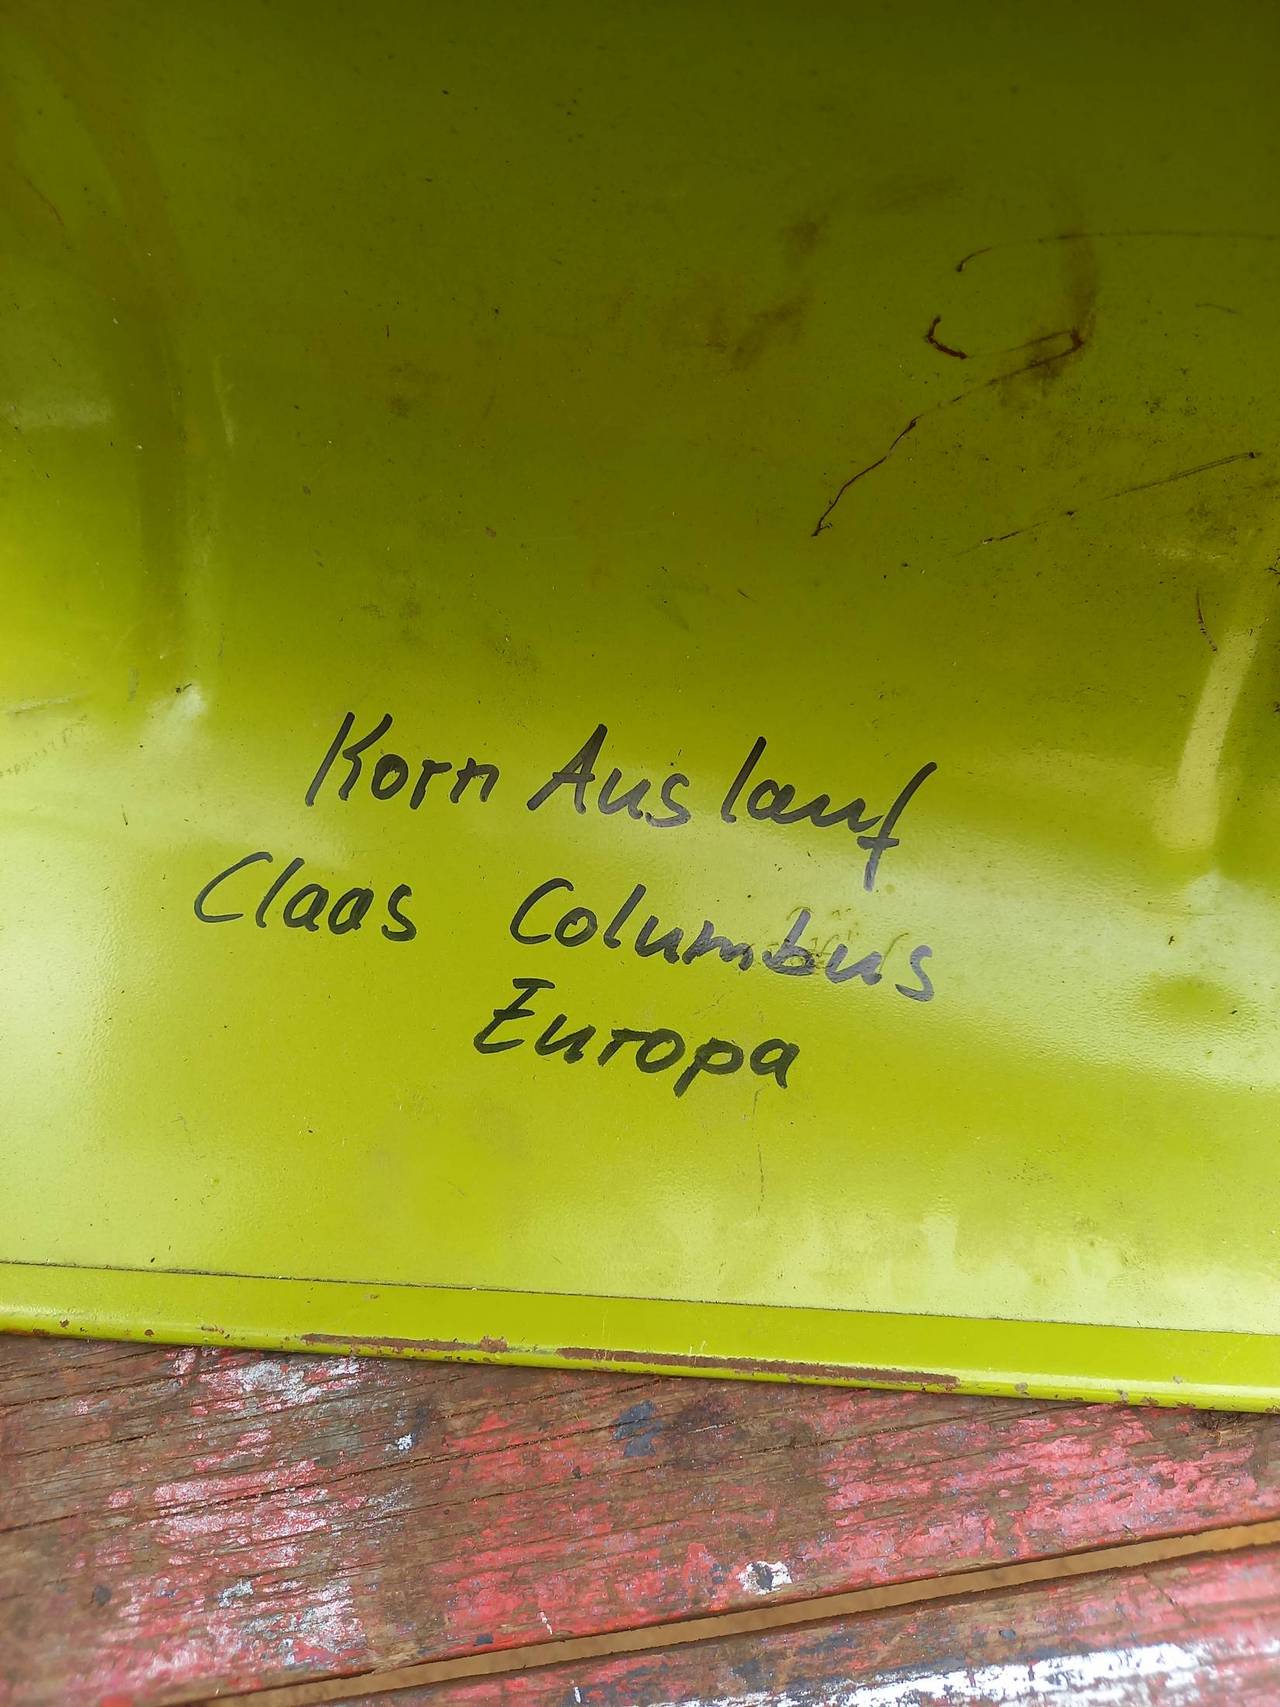 Korn Auslauf
Claas Columbus
Europa